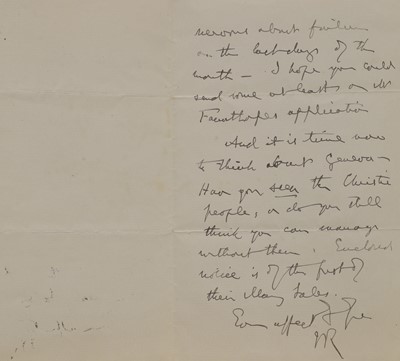 nervous about failure
on the last days of the
month – I hope you could
send some at least on Mr
Faunthorpes application
And it is time now
to think about Geneva –
Have you seen the Christie
people, or do you still
think you can manage
without them. Enclosed
notice is of the first of
their Many Sales.
Ever affect
JR